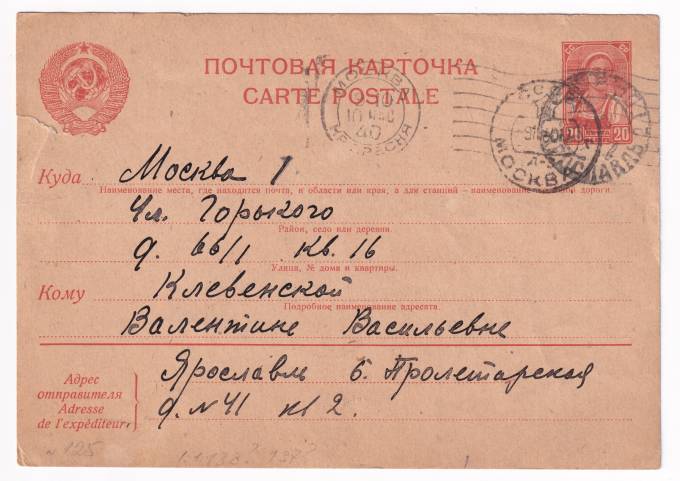 ПОЧТОВАЯ КАРТОЧКА
CARTE POSTALE
МОСКВА
40
МОСКВА
20 20
Куда Москва 1
Наименование места, где находится почта, и области или края, а для станций – наименование дороги.
Ул. Горького
Район, село или деревня.
д. 66/1 кв. 16
Улица, № дома и квартиры.
Кому Клевенской
Подробное наименование адресата.
Валентине Васильевне
Адрес
отправителя
Adresse
de l'expéditeur
Ярославль б. Пролетарская
д. N 41 кв 2.
N 125